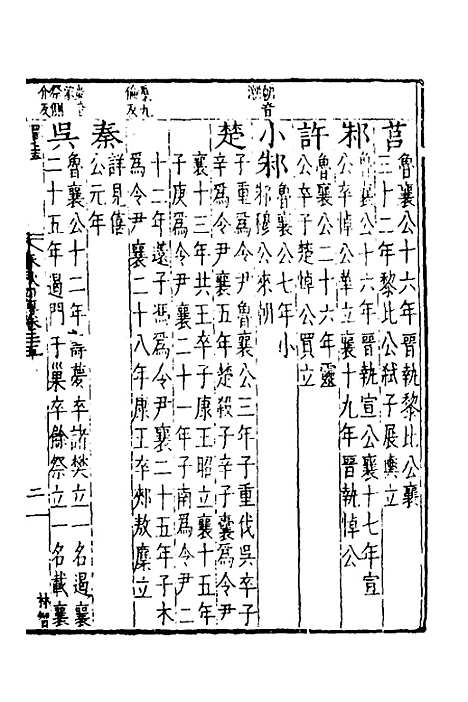 莒
魯襄公十六年晉執黎比公襄
三十二年黎比公弑子展輿立
邾
魯襄公十六年晉執宣公襄十七年宣
公卒悼公華立襄十九年晉執悼公
許
魯襄公二十六年靈
公卒子楚悼公買立
小邾
魯襄公七年小
邾穆公來朝
楚
子重爲令尹魯襄公三年子重伐吳卒子
辛爲令尹襄五年楚殺子辛子囊爲令尹
襄十三年共王卒子康王昭立襄十五年
子庚爲令尹襄二十一年子南爲令尹二
十二年薳子馮爲令尹襄二十五年子木
爲令尹襄二十八年康王卒郟敖麇立
秦
詳見僖
公元年
吳
魯襄公十二年壽夢卒諸樊立一名遏襄
二十五年遏門于巢卒餘祭立一名戴襄
二
林智